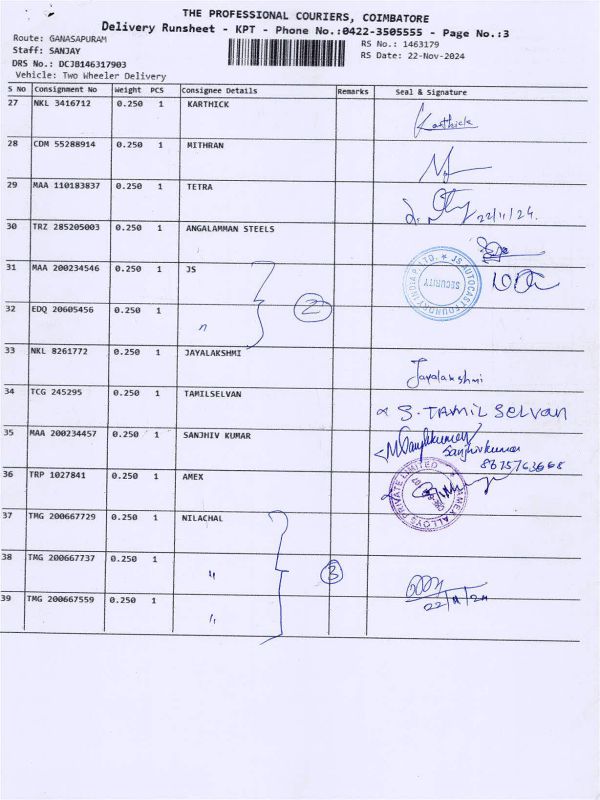 THE PROFESSIONAL COURIERS, COIMBATORE
Delivery Runsheet - KPT - Phone No.:0422-3505555 - Page No.:3
Route: GANASAPURAM
RS No.: 1463179
Staff: SANJAY
RS Date: 22-Nov-2024
DRS No.: DCJB146317903
Vehicle: Two Wheeler Delivery
S No Consignment No Weight PCS Consignee Details Remarks Seal & Signature
27 NKL 3416712 0.250 1 KARTHICK Karthick
28 CDM 55288914 0.250 1 MITHRAN
29 MAA 110183837 0.250 1 TETRA 22/11/24.
30 TRZ 285205003 0.250 1 ANGALAMMAN STEELS
31 MAA 200234546 0.250 1 JS
JS AUTOCAST FOUNDRY INDIA P. LTD. ★ SECURITY
2
32 EDQ 20605456 0.250 1 "
33 NKL 8261772 0.250 1 JAYALAKSHMI Jayalakshmi
34 TCG 245295 0.250 1 TAMILSELVAN S. TAMIL Selvan
35 MAA 200234457 0.250 1 SANJHIV KUMAR Sanjhivkumar
36 TRP 1027841 0.250 1 AMEX
AMMEX ALLOYS PRIVATE LIMITED ★
37 TMG 200667729 0.250 1 NILACHAL
38 TMG 200667737 0.250 1 " 3
22/11/24
39 TMG 200667559 0.250 1 "